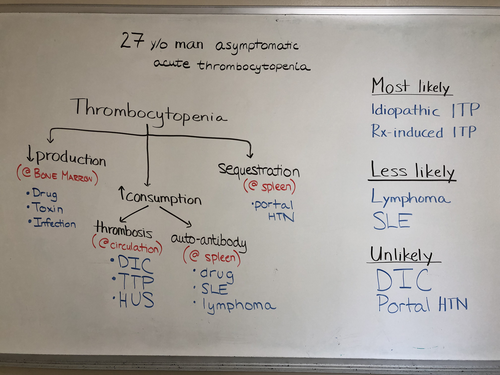 27 y/o man asymptomatic
acute thrombocytopenia
Thrombocytopenia
↓production
(@ BONE MARROW)
• Drug
• Toxin
• Infection
↑consumption
thrombosis
(@ circulation)
• DIC
• TTP
• HUS
auto-antibody
(@ spleen)
• drug
• SLE
• lymphoma
sequestration
(@ spleen)
• portal
HTN
Most likely
Idiopathic ITP
Rx-induced ITP
Less likely
Lymphoma
SLE
Unlikely
DIC
Portal HTN